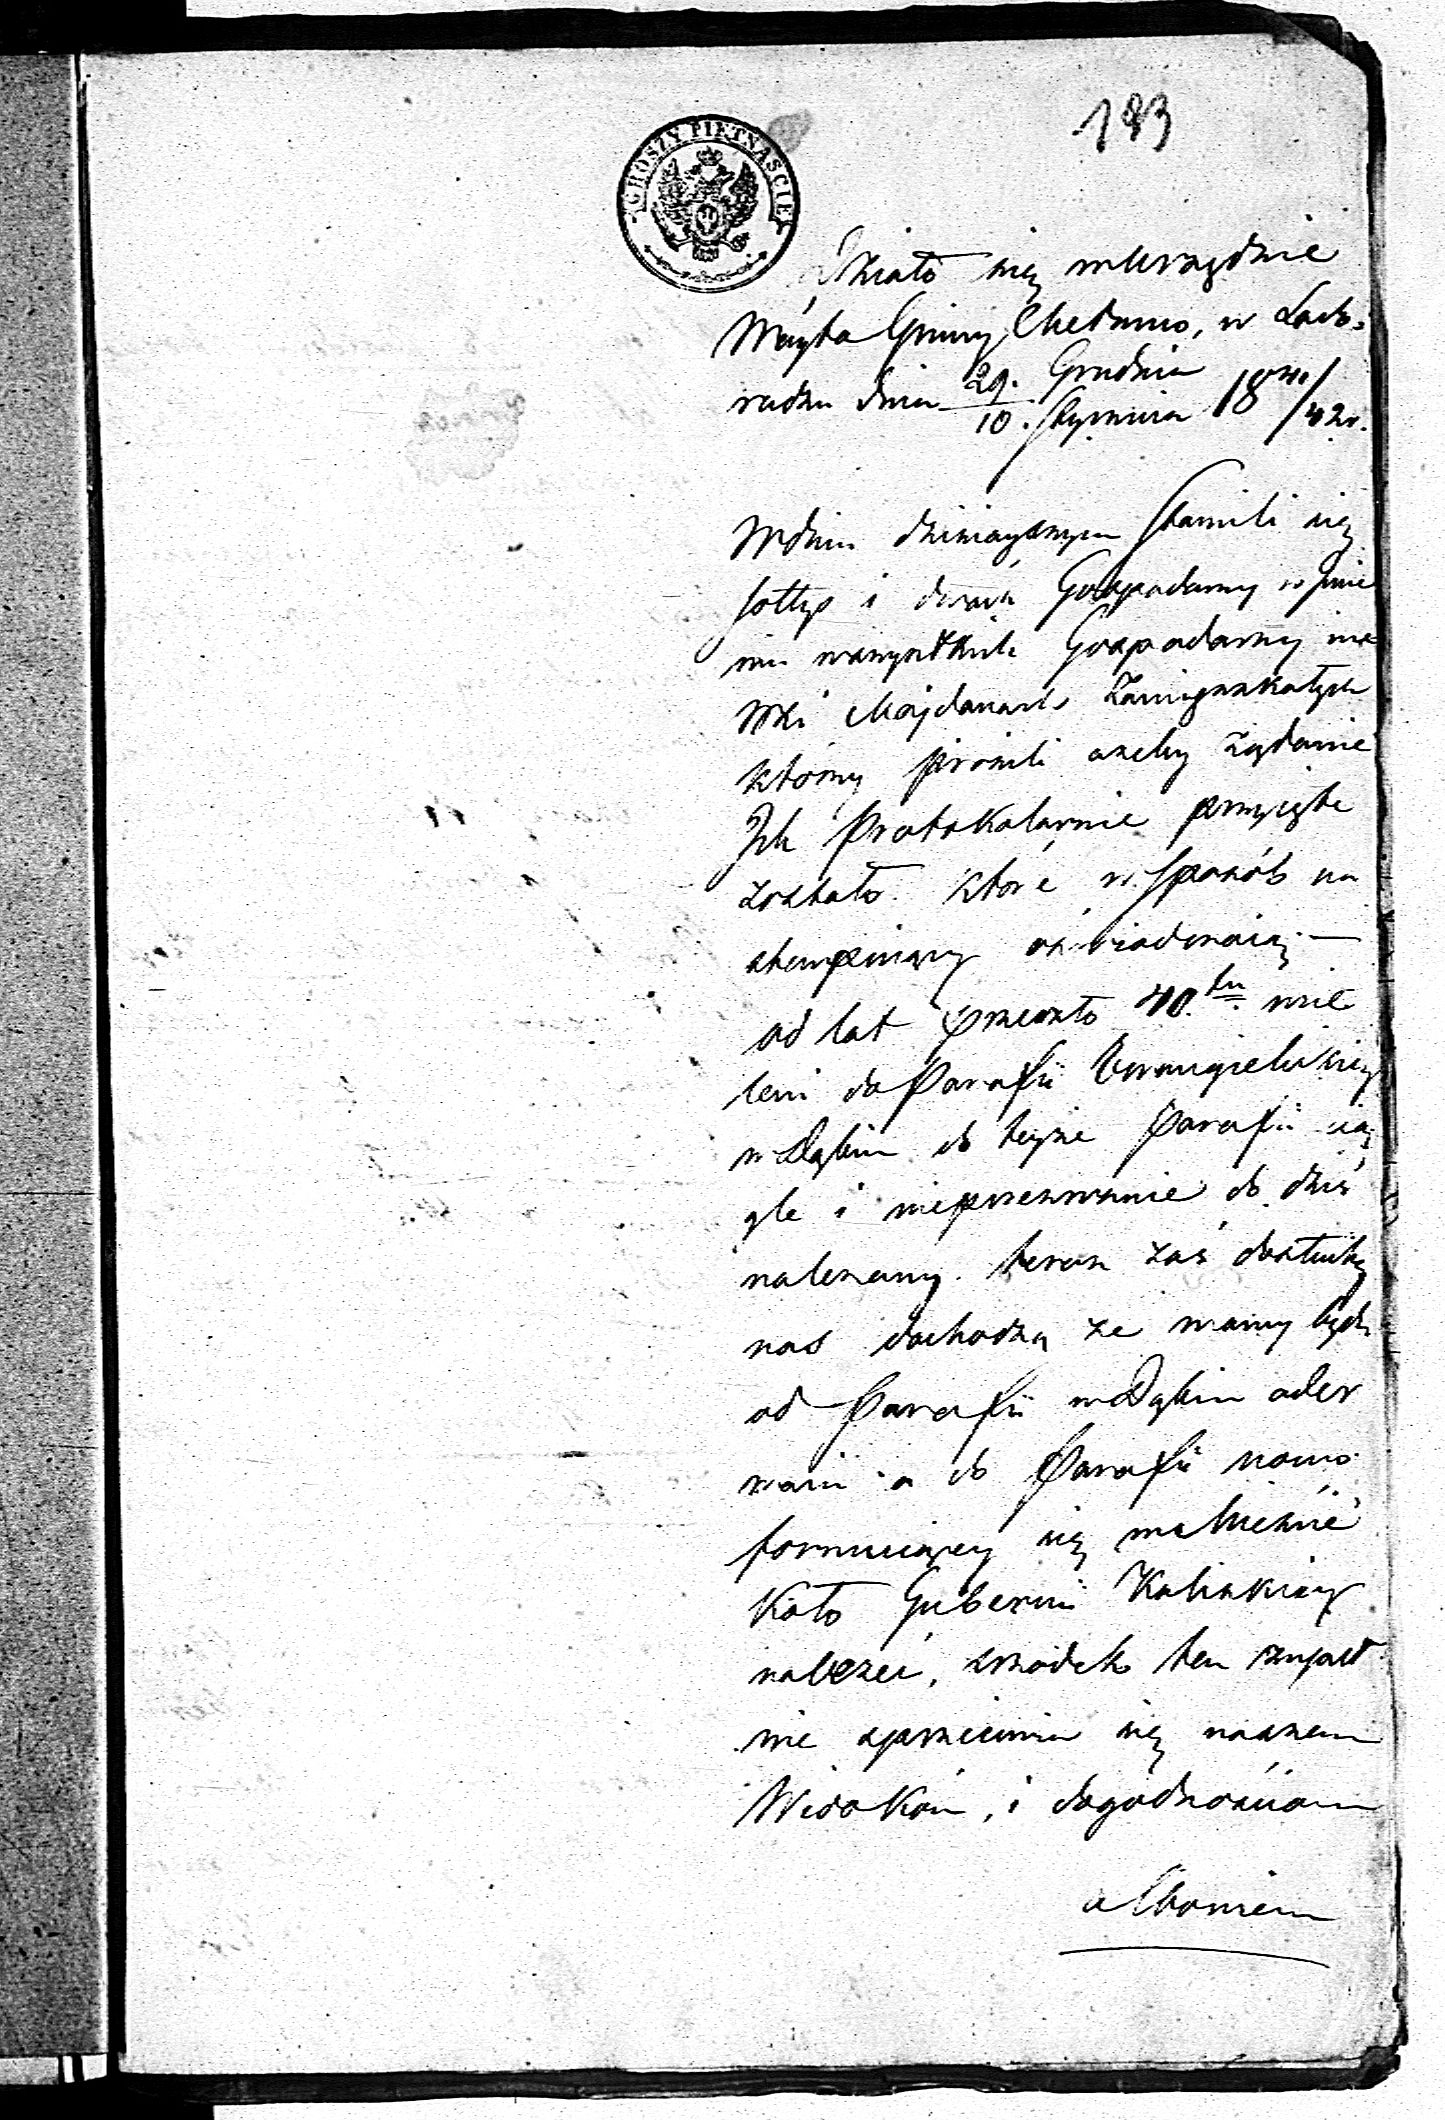 183
GROSZY PIĘTNAŚCIE
Działo się w Urzędzie
Wóyta Gminy Chełmno, w Ład-
rudzu dnia 29. Grudnia / 10. Stycznia 18 41/42 r.
W dniu dzisiayszym stawili się
sołtys i dwóch Gospodarzy w imie
niu wszystkich Gospodarzy na
Wsi Majdanach Zamięszkałych
którzy prosili azeby żądanie
Ich Protokularnie przyięte
zostało które w sposób na
stempuiący oświadczaią —
od lat przeszło 40.tu wcie
leni do Parafii Ewangielickiey
w Dąbiu do teyże Parafii cią
gle i nieprzerwanie do dziś
należemy. teraz zaś dosłuchy
nas dochodzą że mamy bydź
od Parafii w Dąbiu oder
wani a do Parafii nowo
formuiącey się w Mieście
Koło Gubernii Kaliskiey
należeć, srzodek ten zupeł
nie sprzeciwia się naszem
Widokom, i dogodnościom
albowiem